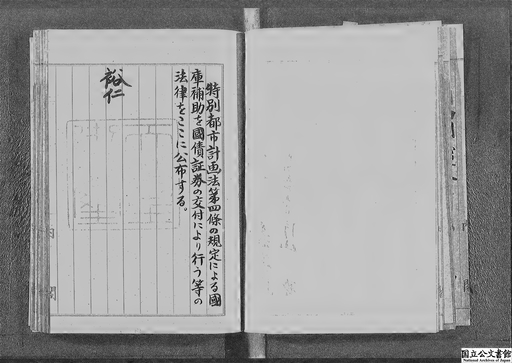 特別都市計画法第四條の規定による國
庫補助を國債証券の交付により行う等の
法律をここに公布する。
裕仁
内閣
国立公文書館
National Archives of Japan